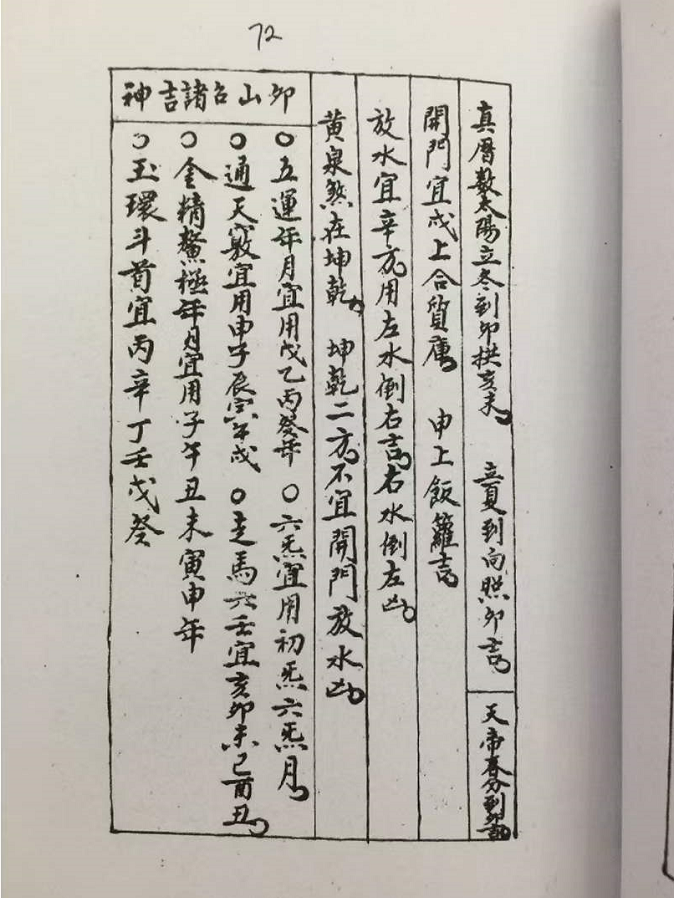 72
真曆数太陽立冬到卯拱亥未 立夏到向照卯吉
天帝春分到卯吉
開門宜戌上合質庫 申上飯籮吉
放水宜辛方用左水倒右吉右水倒左凶
黄泉煞在坤乾 坤乾二方不宜開門放水凶
卯山召諸吉神
○五運年月宜用戊乙丙癸年 ○六炁宜用初炁六炁月
○通天竅宜用申子辰寅午戌 ○走馬六壬宜亥卯未巳酉丑
○金精鰲極年月宜用子午丑未寅申年
○玉環斗首宜丙辛丁壬戊癸